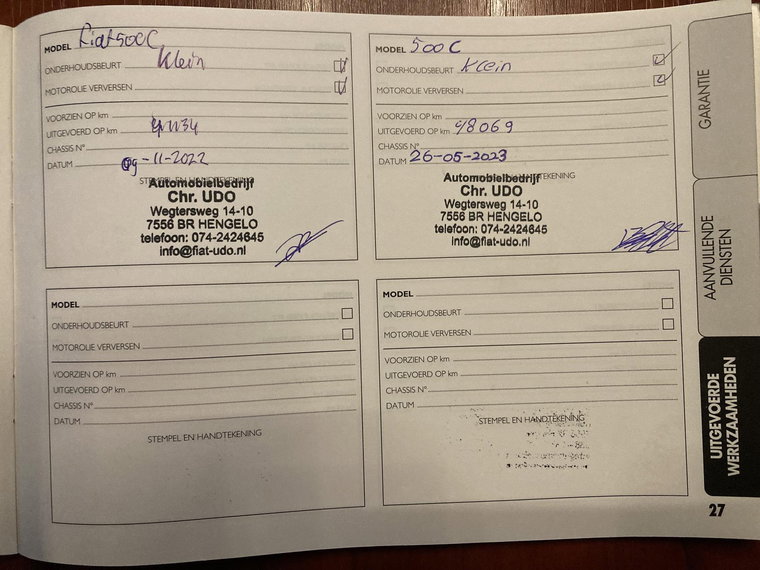 MODEL Fiat 500 C
ONDERHOUDSBEURT Klein
MOTOROLIE VERVERSEN
VOORZIEN OP km
UITGEVOERD OP km
CHASSIS N°
DATUM 09-11-2022
STEMPEL EN HANDTEKENING
Automobielbedrijf
Chr. UDO
Wegtersweg 14-10
7556 BR HENGELO
telefoon: 074-2424645
info@fiat-udo.nl
MODEL 500 C
ONDERHOUDSBEURT Klein
MOTOROLIE VERVERSEN
VOORZIEN OP km
UITGEVOERD OP km 48069
CHASSIS N°
DATUM 26-05-2023
STEMPEL EN HANDTEKENING
Automobielbedrijf
Chr. UDO
Wegtersweg 14-10
7556 BR HENGELO
telefoon: 074-2424645
info@fiat-udo.nl
MODEL
ONDERHOUDSBEURT
MOTOROLIE VERVERSEN
VOORZIEN OP km
UITGEVOERD OP km
CHASSIS N°
DATUM
STEMPEL EN HANDTEKENING
MODEL
ONDERHOUDSBEURT
MOTOROLIE VERVERSEN
VOORZIEN OP km
UITGEVOERD OP km
CHASSIS N°
DATUM
STEMPEL EN HANDTEKENING
GARANTIE
AANVULLENDE
DIENSTEN
UITGEVOERDE
WERKZAAMHEDEN
27